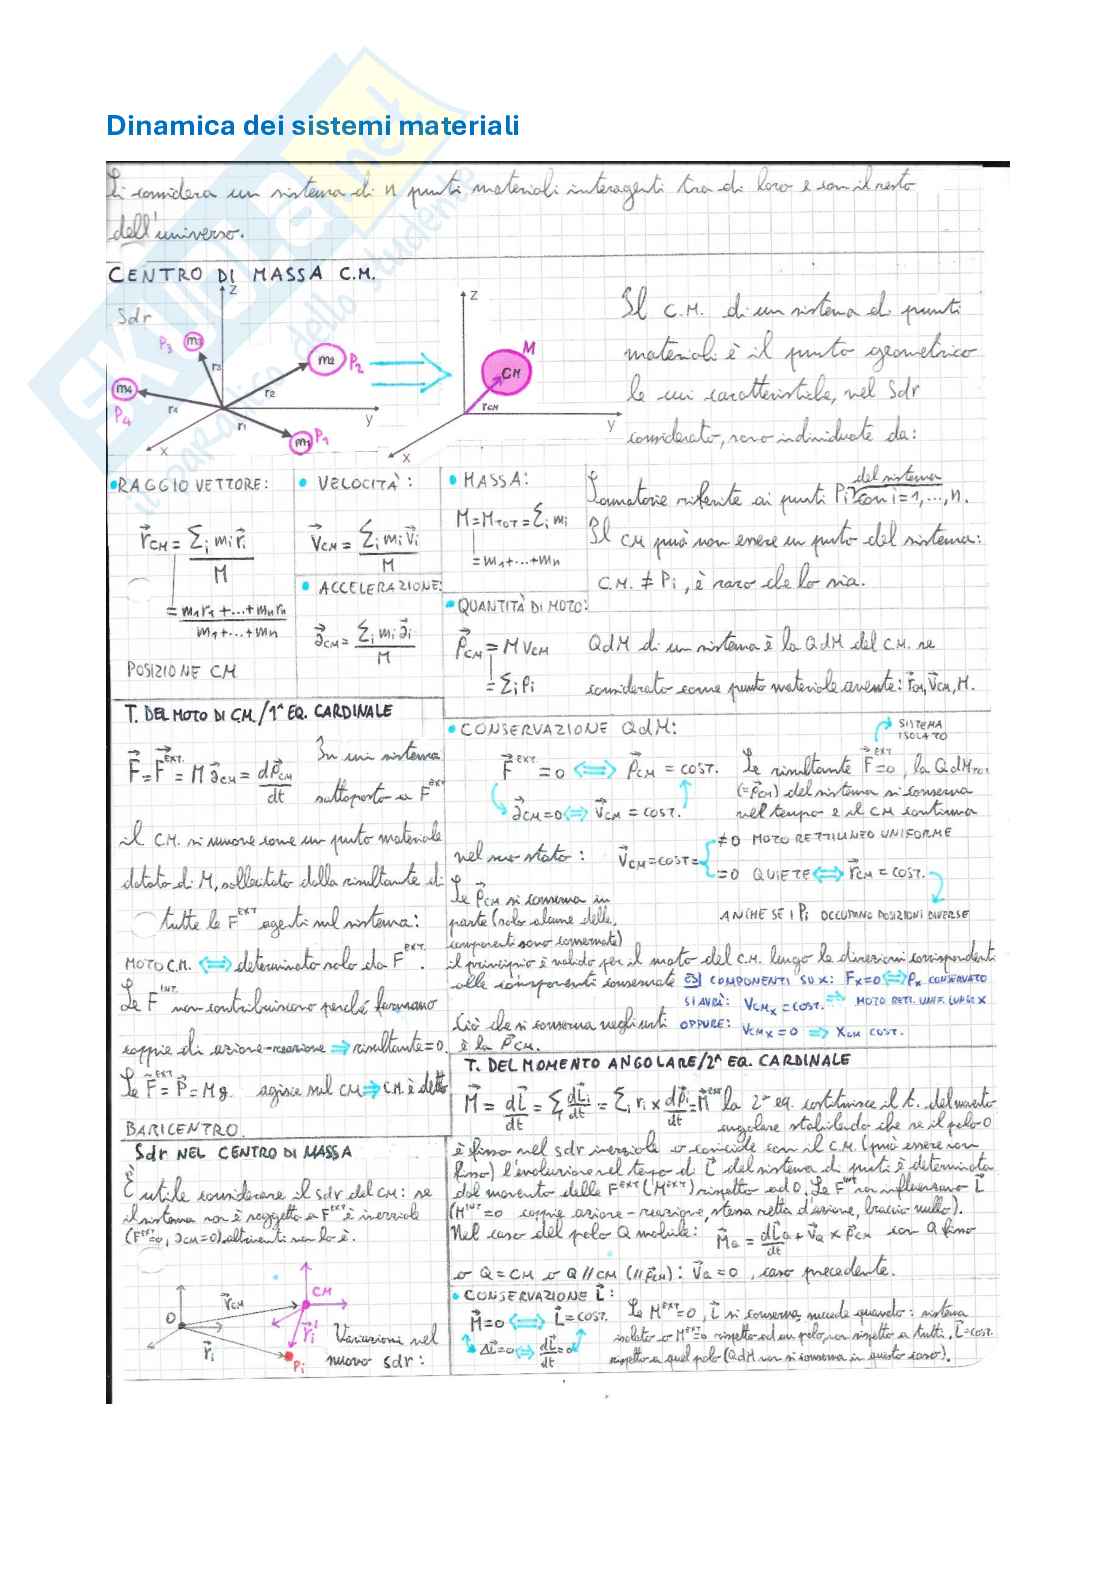 Dinamica dei sistemi materiali
Si considera un sistema di n punti materiali interagenti tra di loro e con il resto
dell'universo.
CENTRO DI MASSA C.M.
Sdr
z
P₃ m₃
m₂ P₂
m₄
P₄
r₃
r₂
r₄
r₁
m₁ P₁
x
y
z
M
CM
r_CM
y
x
Il C.M. di un sistema di punti
materiali è il punto geometrico
le cui caratteristiche, nel Sdr
considerato, sono individuate da:
• RAGGIO VETTORE:
r⃗_CM = Σᵢ mᵢ r⃗ᵢ / M
= m₁r₁ + ... + mₙrₙ / m₁ + ... + mₙ
POSIZIONE CM
• VELOCITÀ:
v⃗_CM = Σᵢ mᵢ v⃗ᵢ / M
• ACCELERAZIONE:
a⃗_CM = Σᵢ mᵢ a⃗ᵢ / M
• MASSA:
M = M_TOT = Σᵢ mᵢ
= m₁ + ... + mₙ
del sistema
Sommatorie riferite ai punti Pᵢ con i = 1, ..., n.
Il CM può non essere un punto del sistema:
C.M. ≠ Pᵢ, è raro che lo sia.
• QUANTITÀ DI MOTO:
p⃗_CM = M v_CM
= Σᵢ pᵢ
QdM di un sistema è la QdM del C.M. se
considerato come punto materiale avente: r⃗_CM, v⃗_CM, M.
T. DEL MOTO DI CM / 1ª EQ. CARDINALE
F⃗ = F⃗^EXT. = M a⃗_CM = dp⃗_CM / dt
In un sistema
sottoposto a F^EXT
il C.M. si muove come un punto materiale
dotato di M, sollecitato dalla risultante di
tutte le F^EXT agenti sul sistema:
MOTO C.M. ⟺ determinato solo da F^EXT.
Le F^INT. non contribuiscono perché formano
coppie di azione-reazione ⇒ risultante = 0
Se F⃗^EXT. = P⃗ = Mg agisce sul CM ⇒ C.M. è detto
BARICENTRO.
• CONSERVAZIONE QdM:
F⃗^EXT = 0 ⟺ p⃗_CM = COST.
a⃗_CM = 0 ⟺ v⃗_CM = COST.
SISTEMA
ISOLATO
Se risultante F⃗^EXT. = 0, la QdM_TOT.
(= p⃗_CM) del sistema si conserva
nel tempo e il CM continua
nel suo stato: v⃗_CM = COST =
≠ 0 MOTO RETTILINEO UNIFORME
= 0 QUIETE ⟺ r⃗_CM = COST.
ANCHE SE I Pᵢ OCCUPANO POSIZIONI DIVERSE
Se p⃗_CM si conserva in
parte (solo alcune delle
componenti sono conservate)
il principio è valido per il moto del C.M. lungo le direzioni corrispondenti
alle componenti conservate ES) COMPONENTI SU X: Fx = 0 ⟺ Px CONSERVATO
SI AVRÀ: V_CMx = COST. ⇒ MOTO RETT. UNIF. LUNGO X
Ciò che si conserva negli urti OPPURE: V_CMx = 0 ⇒ X_CM COST.
è la p⃗_CM.
T. DEL MOMENTO ANGOLARE / 2ª EQ. CARDINALE
M⃗ = dL⃗/dt = Σᵢ dL⃗ᵢ/dt = Σᵢ rᵢ × dp⃗ᵢ/dt = M⃗^EXT la 2ª eq. costituisce il t. del momento
angolare stabilendo che se il polo O
è fisso nel sdr inerziale o coincide con il C.M. (può essere non
fisso) l'evoluzione nel tempo di L⃗ del sistema di punti è determinata
dal momento delle F^EXT (M^EXT) rispetto ad O. Le F^INT non influenzano L⃗
(M^INT = 0 coppie azione-reazione, stessa retta d'azione, braccio nullo).
Nel caso del polo Q mobile: M⃗_Q = dL⃗_Q/dt + v⃗_Q × p⃗_CM con Q fisso
o Q = CM o Q // CM (// p⃗_CM): v⃗_Q = 0, caso precedente.
Sdr NEL CENTRO DI MASSA
È utile considerare il sdr del CM: se
il sistema non è soggetto a F^EXT è inerziale
(F^EXT = 0, a_CM = 0) altrimenti non lo è.
CM
r⃗_CM
O
r⃗ᵢ'
r⃗ᵢ
Pᵢ
Variazioni nel
nuovo sdr:
• CONSERVAZIONE L⃗:
M⃗ = 0 ⟺ L⃗ = COST.
ΔL⃗ = 0 ⟺ dL⃗/dt = 0
Se M^EXT = 0, L⃗ si conserva, succede quando: sistema
isolato o M^EXT = 0 rispetto ad un polo, non rispetto a tutti. L⃗ = COST.
rispetto a quel polo (QdM non si conserva in questo caso).